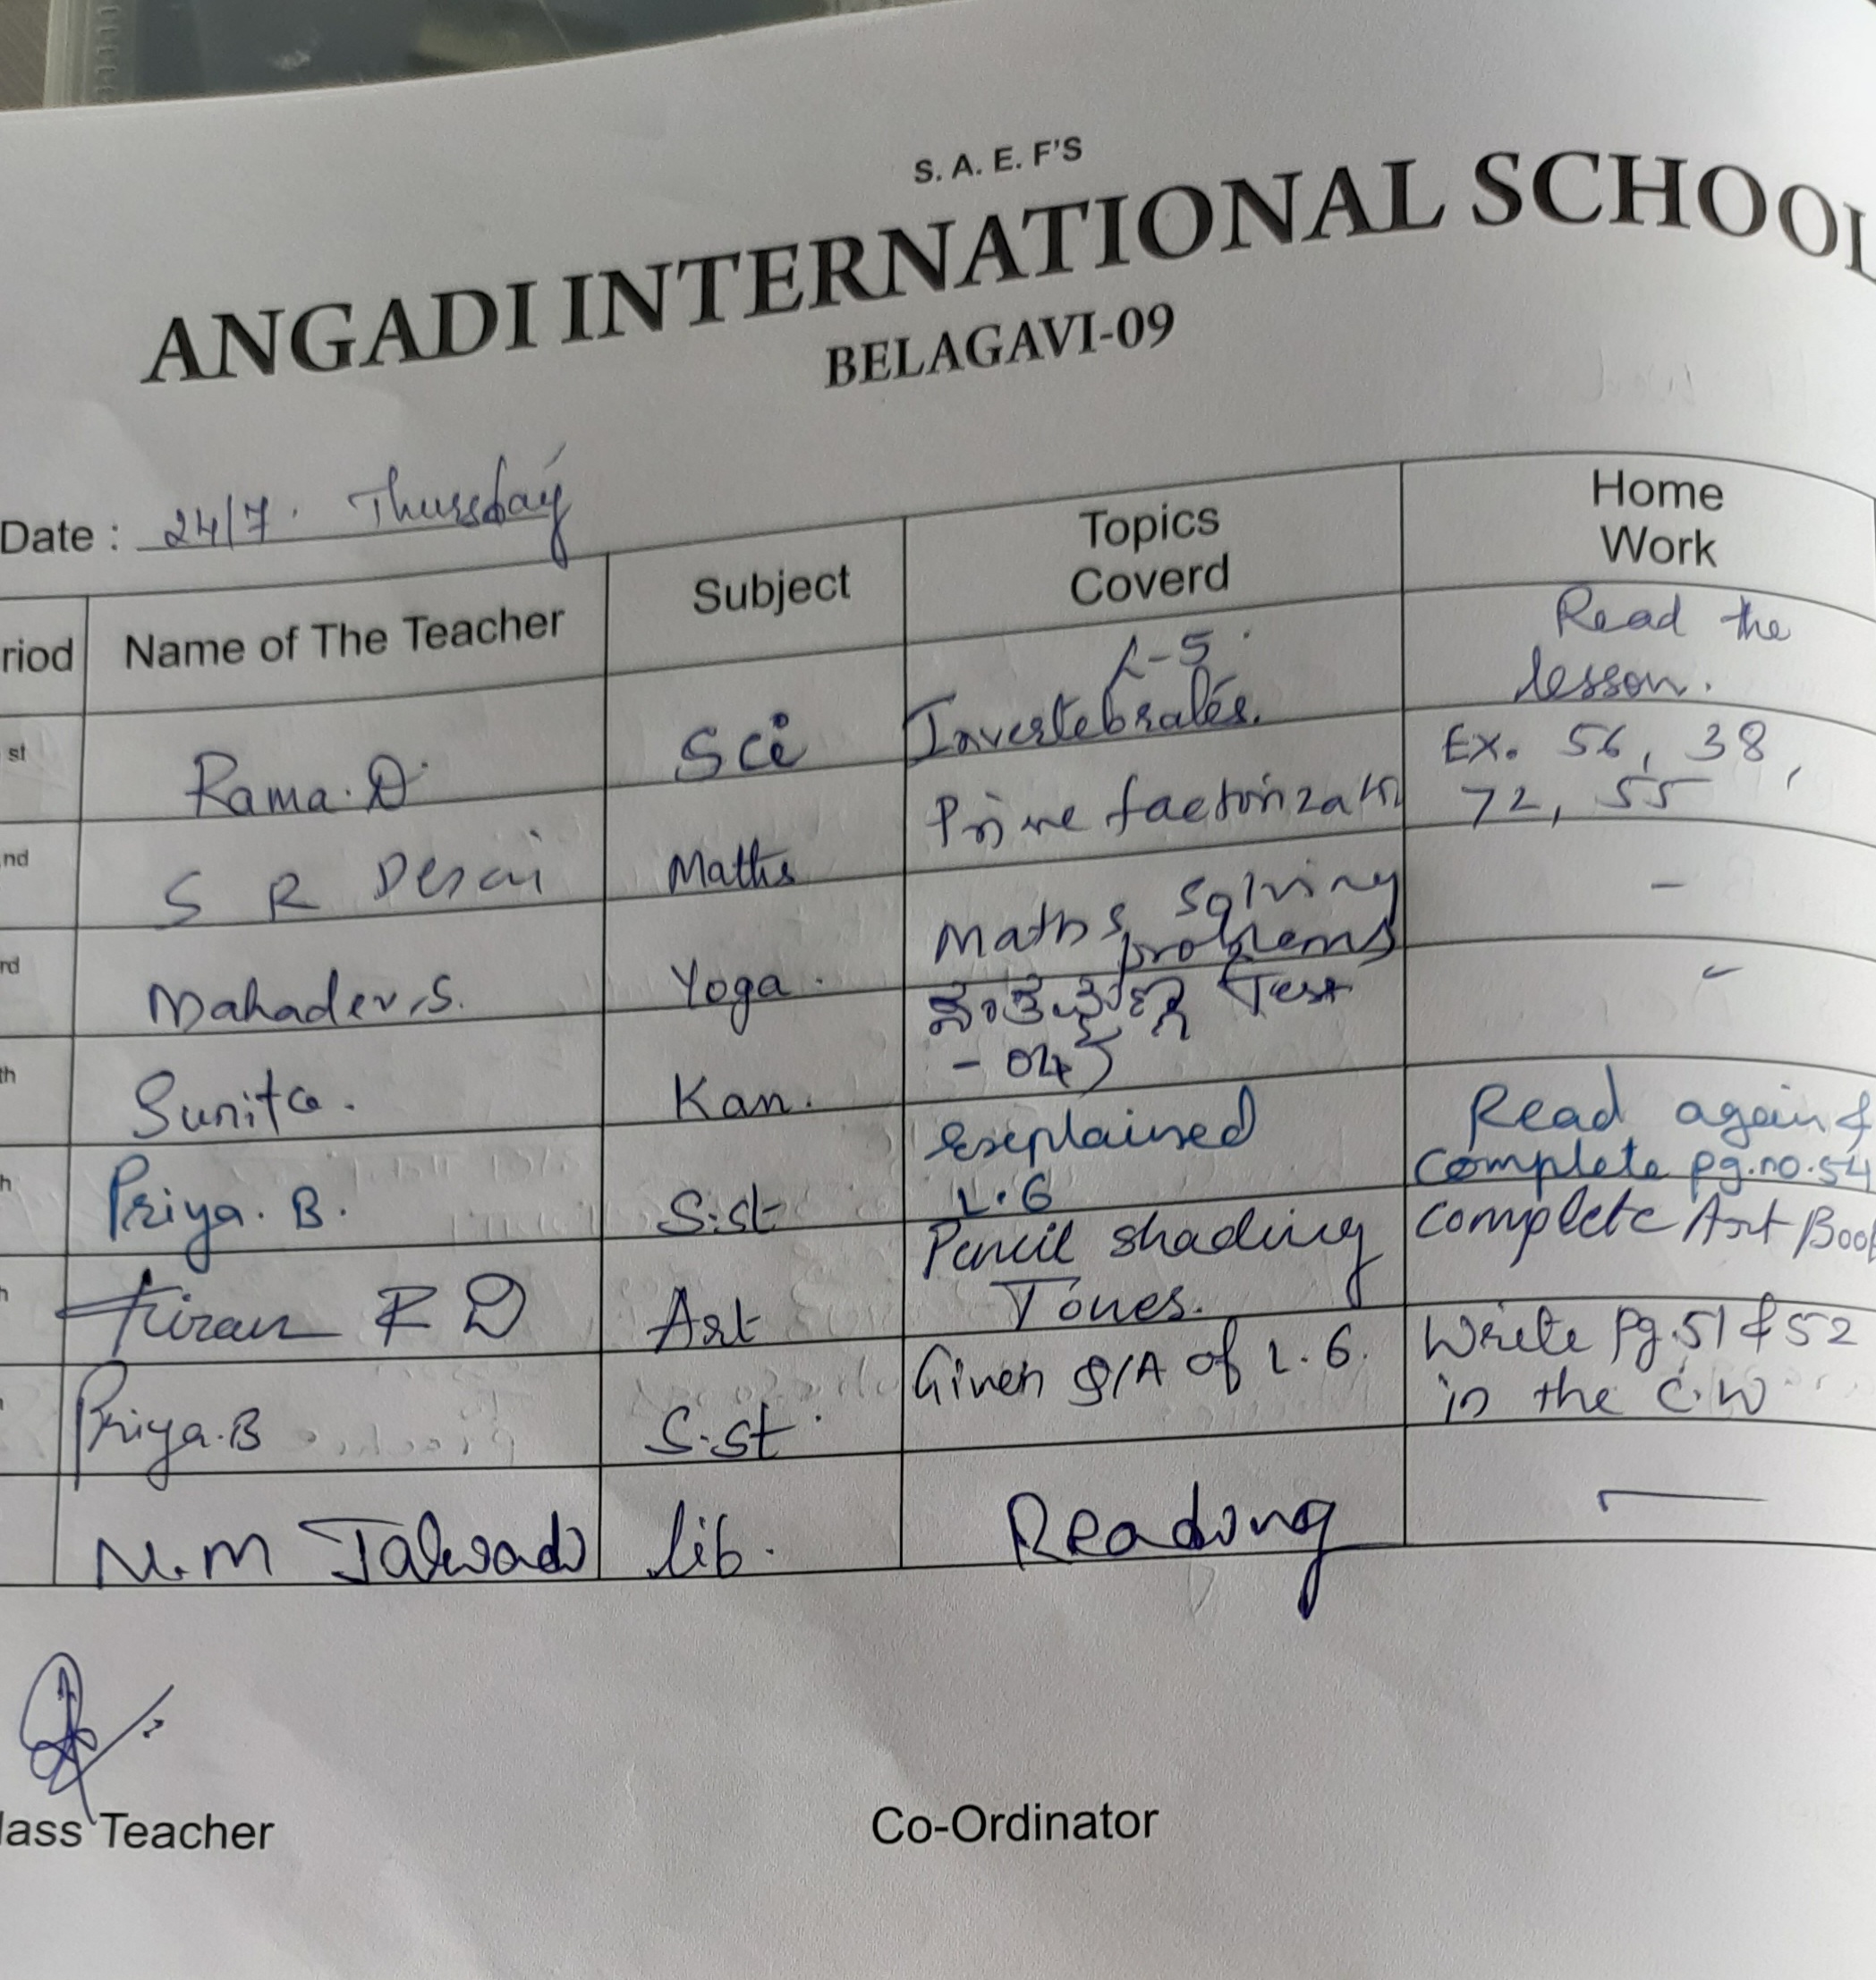 S. A. E. F'S
ANGADI INTERNATIONAL SCHOOL
BELAGAVI-09
Date : 24/7. Thursday
riod Name of The Teacher Subject Topics Coverd Home Work
st Rama. D. Sci L-5. Invertebrates. Read the lesson.
nd S R Desai Maths Prime factorizatn Ex. 56, 38, 72, 55
rd Mahadev.S. Yoga. Maths solving problems -
th Sunita. Kan. Test - 04 -
h Priya. B. S.st Explained L.6 Read again & Complete pg.no.54
h Kiran R D Art Pencil shading Tones. Complete Art Book
Priya.B S.st. Given Q/A of L.6. Write Pg.51 & 52 in the C.W
N.M Talwad lib. Reading -
lass Teacher Co-Ordinator